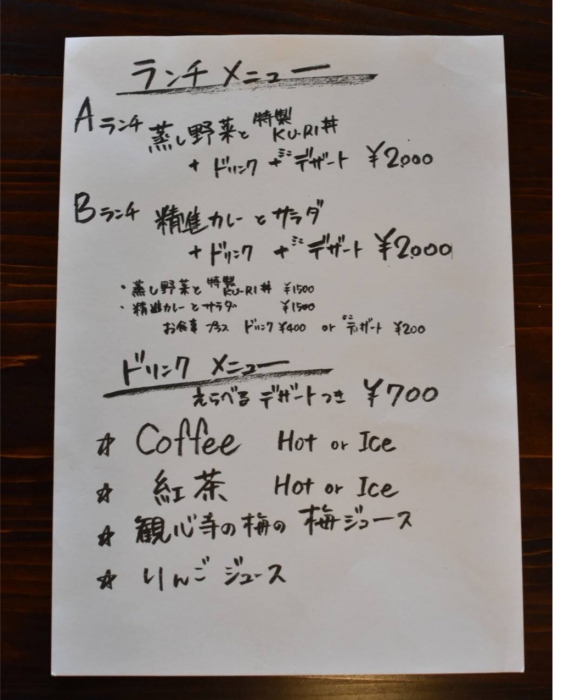 ランチ メニュー
Aランチ 蒸し野菜と 特製 KU-RI丼
+ ドリンク +ミニデザート ¥2,000
Bランチ 精進カレーとサラダ
+ ドリンク +ミニデザート ¥2,000
・蒸し野菜と 特製 KU-RI丼 ¥1500
・精進カレーとサラダ ¥1500
お食事 プラス ドリンク¥400 or ミニデザート ¥200
ドリンク メニュー
えらべる デザートつき ¥700
☆ Coffee Hot or Ice
☆ 紅茶 Hot or Ice
☆ 観心寺の梅の 梅ジュース
☆ りんご ジュース